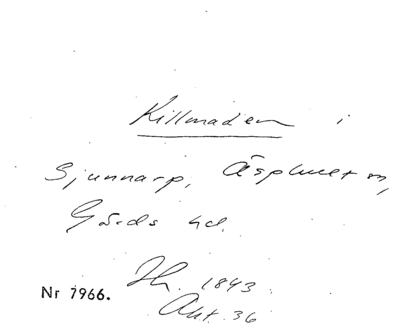 Killmaden i
Sjunnarp, Äsphult sn,
Gärds hd.
Nr 7966.
1843
Akt. 36